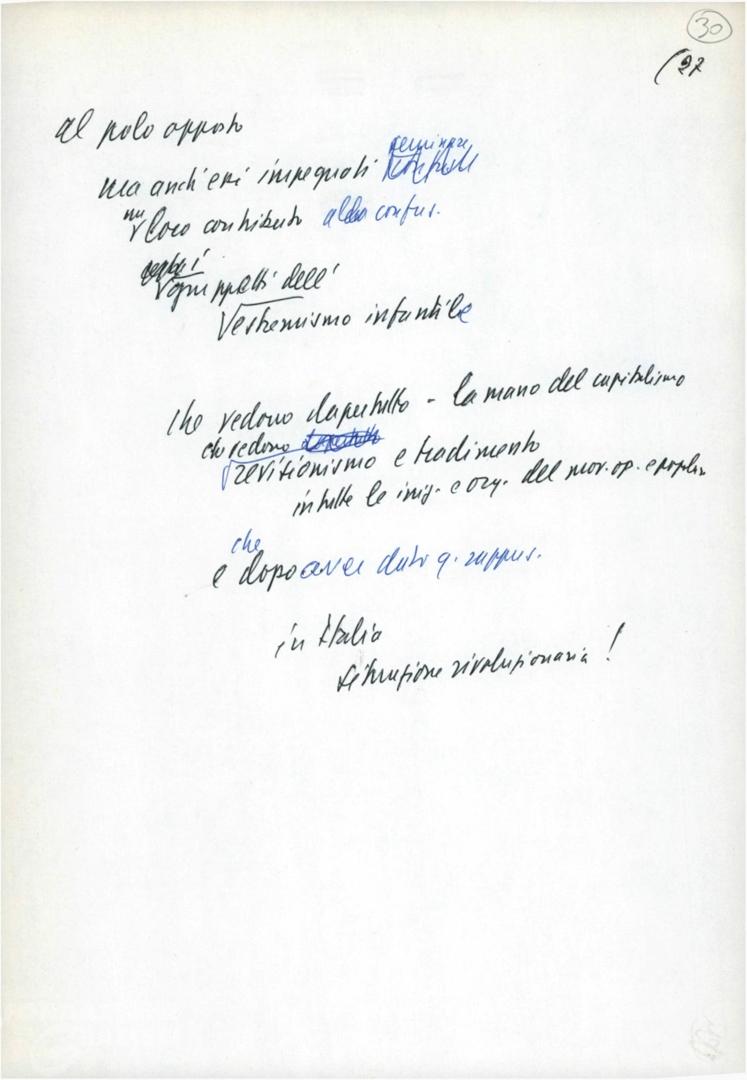 30
(27
al polo opposto
ma anch'essi impegnati
loro contributo alla confus.
gruppetti dell'
estremismo infantile
che vedono dapertutto - la mano del capitalismo
che vedono dapertutto
revisionismo e tradimento
in tutte le iniz. e org. del mov. op. e popolare
che
e dopo aver dato q. rappres.
in Italia
situazione rivoluzionaria!